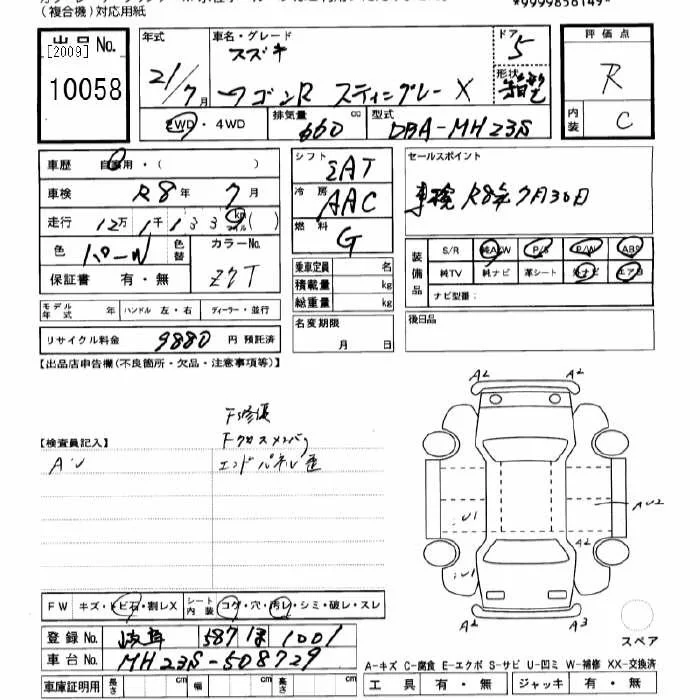 (複合機)対応用紙
*9999858149*
出品 No.
[2009]
10058
年式
21/7月
車名・グレード
スズキ
ワゴンR スティングレー X
ドア
5
形状
評価点
R
内装
C
2WD・4WD
排気量
660 cc
型式
DBA-MH23S
車歴 自家用・( )
車検 R8年 7月
走行 12万1千133 km
色 パール
色替
カラーNo.
Z7T
保証書 有・無
モデル年式 年 ハンドル 左・右 ディーラー・並行
リサイクル料金 9880 円 預託済
シフト
冷房 AAC
燃料 G
乗車定員 名
積載量 kg
総重量 kg
名変期限
月 日
セールスポイント
車検 R8年7月30日
装備品
S/R 純A/W P/S P/W ABS
純TV 純ナビ 革シート 社ナビ エアB
ナビ型番:
後日品
【出品店申告欄(不良箇所・欠品・注意事項等)】
F修復
Fクロスメンバ
エンドパネル歪
【検査員記入】
A・U
A2 A2
AU2
U1
A2
U1
A2 A3
スペア
FW キズ・トビ石・割レX
シート内装 コゲ・穴・汚レ・シミ・破レ・スレ
登録No. 岐阜 587 1001
車台No. MH23S-508729
車庫証明用 長さ cm 幅 cm 高さ cm
A-キズ C-腐食 E-エクボ S-サビ U-凹ミ W-補修 XX-交換済
工具 有・無 ジャッキ 有・無